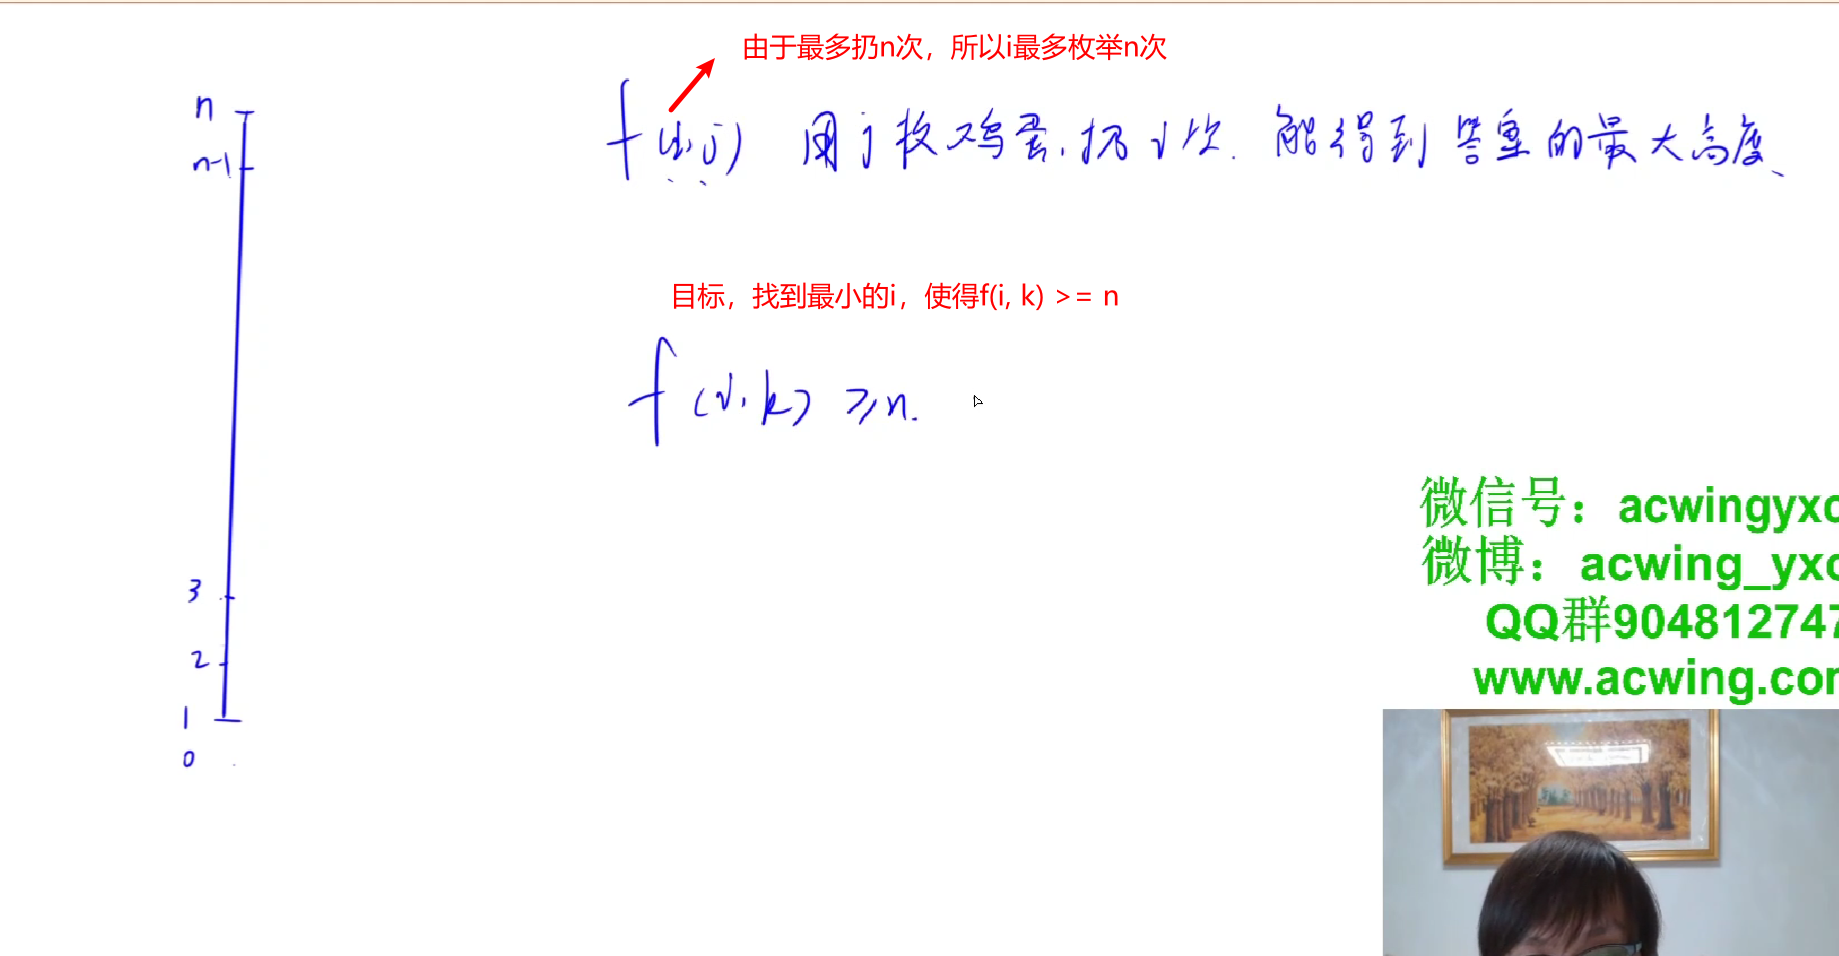 由于最多扔n次，所以i最多枚举n次
f(i,j) 用j枚鸡蛋，扔i次．能得到答案的最大高度、
目标，找到最小的i，使得f(i, k) >= n
f(i, k) ≥n.
n
n-1
3
2
1
0
微信号：acwingyxc
微博：acwing_yxc
QQ群904812747
www.acwing.com